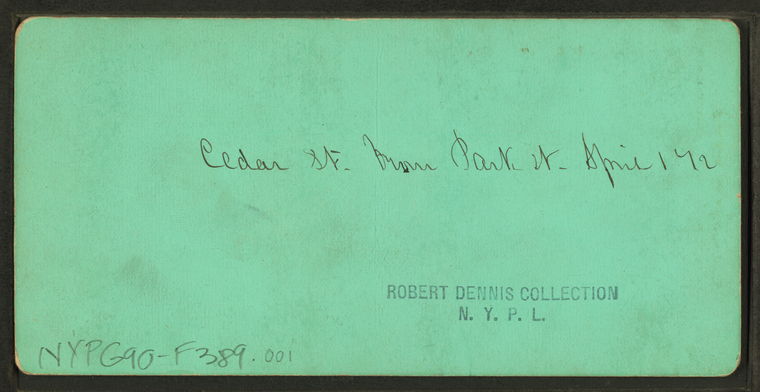 Cedar St. from Park st. April 1 '72
ROBERT DENNIS COLLECTION
N. Y. P. L.
NYPG90-F389.001